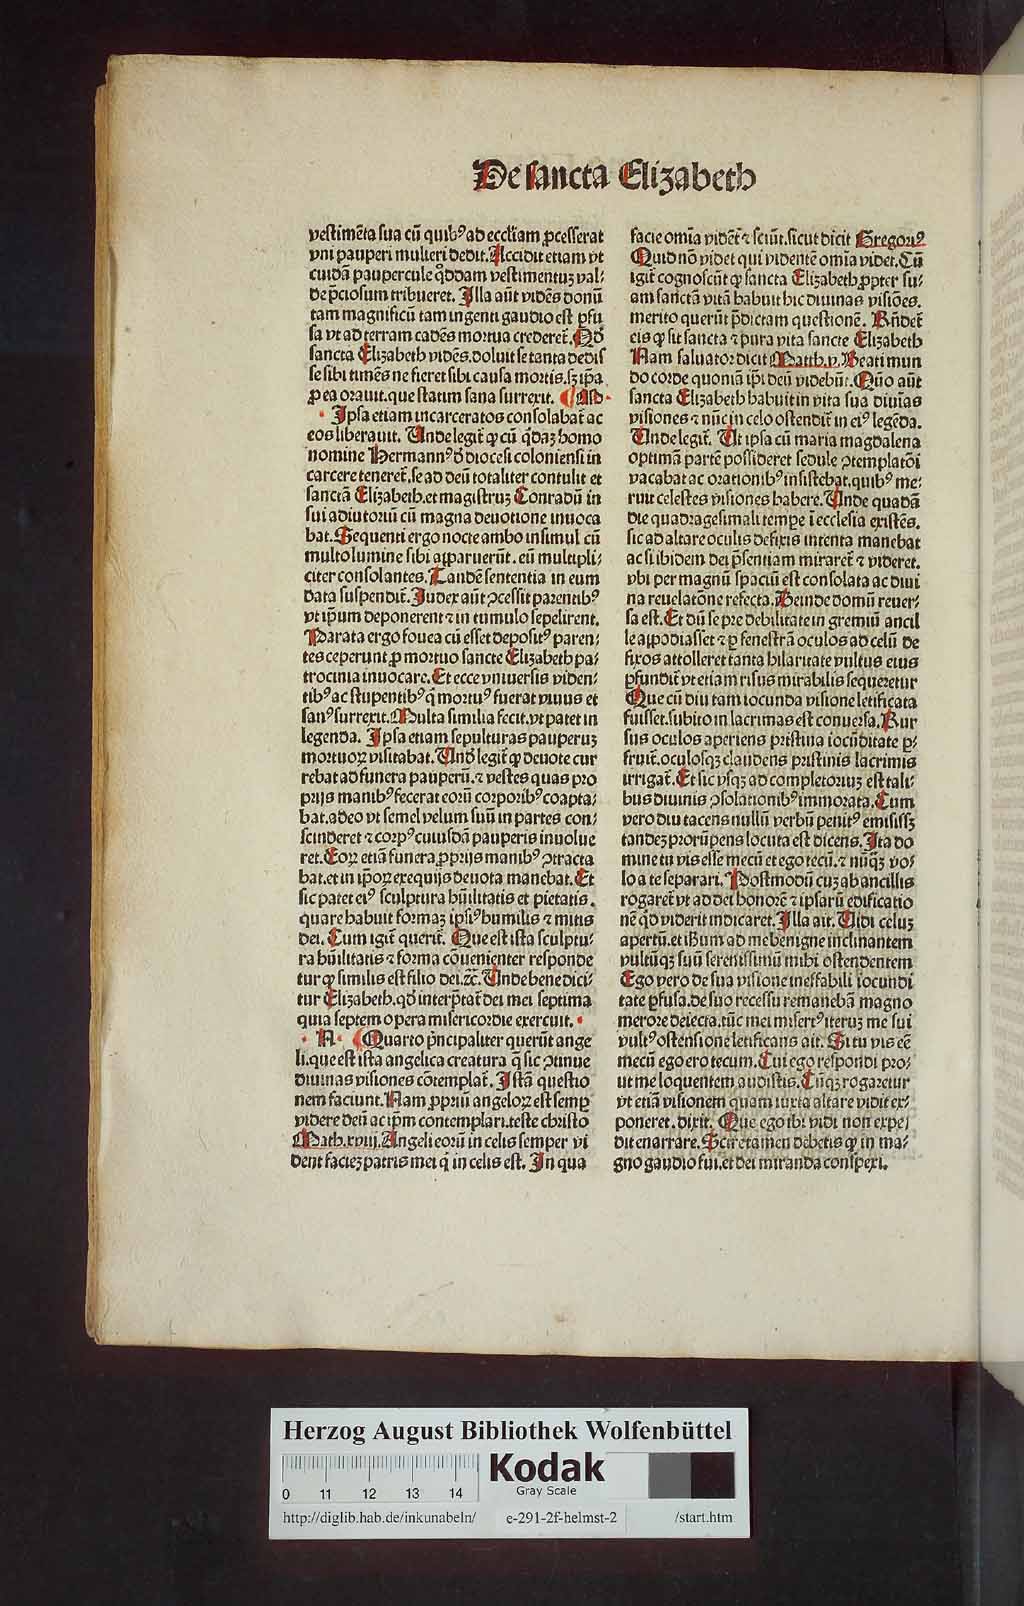 De sancta Elizabeth
vestimēta sua cū quibꝰ ad eccl̄iam ꝓcesserat
vni pauperi mulieri dedit. Accidit etiam vt
cuidā paupercule qͦddam vestimentuꝫ val-
de p̄ciosum tribueret. Illa aūt vidēs donū
tam magnificū tam ingenti gaudio est ꝑfu
sa vt ad terram cadēs mortua crederet̄. Qd̛
sancta Elizabeth vidēs. doluit se tanta dedis
se sibi timēs ne fieret sibi causa mortis. sꝫ ip̄a
ꝓ ea orauit. que statim sana surrexit.
Ipsa etiam incarceratos consolabat̄ ac
eos liberauit. Unde legit̄ ꝙ cū qͥdaꝫ homo
nomine Hermannꝰ d̛ diocesi coloniensi in
carcere teneret̄. se ad deū totaliter contulit et
sanctā Elizabeth. et magistruꝫ Conradū in
sui adiutoriū cū magna deuotione inuoca
bat. Sequenti ergo nocte ambo insimul cū
multo lumine sibi apparuerūt. eū multipli-
citer consolantes. Tandē sententia in eum
data suspendit̄. Iudex aūt ꝯcessit parentibꝰ
vt ip̄um deponerent ⁊ in tumulo sepelirent.
Parata ergo fouea cū esset depositꝰ paren-
tes ceperunt ꝓ mortuo sancte Elizabeth pa-
trocinia inuocare. Et ecce vniuersis viden-
tibꝰ ac stupentibꝰ qͥ mortuꝰ fuerat viuus et
sanꝰ surrexit. Multa similia fecit. vt patet in
legenda. Ipsa etiam sepulturas pauperuꝫ
mortuoꝝ visitabat. Und̛ legit̄ ꝙ deuote cur
rebat ad funera pauperū. ⁊ vestes quas pro
prijs manibꝰ fecerat eorū corporibꝰ coapta-
bat. adeo vt semel velum suū in partes con-
scinderet ⁊ corpꝰ cuiusdā pauperis inuolue
ret. Eoꝝ etiā funera ꝓprijs manibꝰ ꝯtracta
bat. et in ip̄oꝝ exequijs deuota manebat. Et
sic patet eiꝰ sculptura hūilitatis et pietatis.
quare habuit formaꝫ ipsiꝰ humilis ⁊ mitis
dei. Cum igit̄ querit̄. Que est ista sculptu-
ra hūilitatis ⁊ forma cōuenienter responde
tur ꝙ similis est filio dei. ⁊c̄. Unde benedici-
tur Elizabeth. qd̛ interp̄tat̄ dei mei septima
quia septem opera misericordie exercuit.
Quarto pͥncipaliter querūt ange
li. que est ista angelica creatura q̄ sic ꝯtinue
diuinas visiones cōtemplat̄. Istā questio
nem faciunt. Nam ꝓpriū angeloꝝ est semꝑ
videre deū ac ip̄m contemplari. teste christo
Math. xviij. Angeli eorū in celis semper vi
dent facieꝫ patris mei qͥ in celis est. In qua
facie omīa vidēt̄ ⁊ sciūt. sicut dicit Gregoriꝰ
Quid nō videt qui videntē omīa videt. Cū
igit̄ cognoscūt ꝙ sancta Elizabeth ꝓpter su-
am sanctā vitā habuit hic diuinas visiōes.
merito querūt p̄dictam questionē. Rn̄det̄
eis ꝙ sit sancta ⁊ pura vita sancte Elizabeth
Nam saluator dicit Matth. v. Beati mun
do corde quoniā ip̄i deū videbūt. Quō aūt
sancta Elizabeth habuit in vita sua diuīas
visiones ⁊ nūc in celo ostendit̄ in eiꝰ legēda.
Unde legit̄. Ut ipsa cū maria magdalena
optimā partē possideret sedule ꝯtemplatōi
vacabat ac orationibꝰ insistebat. quibꝰ me-
ruit celestes visiones habere. Unde quadā
die quadragesimali tempe i ecclesia existēs.
sic ad altare oculis defixis intenta manebat
ac si ibidem dei p̄sentiam miraret̄ ⁊ videret.
vbi per magnū spaciū est consolata ac diui
na reuelatōne refecta. Deinde domū reuer-
sa est. Et dū se pre debilitate in gremiū ancil
le appodiasset ⁊ ꝑ fenestrā oculos ad celū de
fixos attolleret tanta hilaritate vultus eius
ꝑfundit̄ vt etiam risus mirabilis sequeretur
Que cū diu tam iocunda visione letificata
fuisset. subito in lacrimas est conuersa. Rur
sus oculos aperiens pristina iocūditate ꝑ-
fruit̄. oculosqꝫ claudens pristinis lacrimis
irrigat̄. Et sic vsqꝫ ad completoriuꝫ est tali-
bus diuinis ꝯsolationibꝰ immorata. Cum
vero diu tacens nullū verbū penitꝰ emisissꝫ
tandeꝫ prorūpens locuta est dicens. Ita do
mine tu vis esse mecū et ego tecū. ⁊ nūqꝫ vo-
lo a te separari. Postmodū cuꝫ ab ancillis
rogaret̄ vt ad dei honorē ⁊ ipsarū edificatio
nē qͦd viderit indicaret. Illa ait. Uidi celuꝫ
apertū. et iħum ad me benigne inclinantem
vultūqꝫ suū serenissimū mihi ostendentem
Ego vero de sua visione ineffabili iocundi
tate ꝑfusa. de suo recessu remanebā magno
merore deiecta. tūc mei misertꝰ iteruꝫ me sui
vultꝰ ostensione letificans ait. Si tu vis eē
mecū ego ero tecum. Cui ego respondi pro-
ut me loquentem audistis. Cūqꝫ rogaretur
vt etiā visionem quam iuxta altare vidit ex-
poneret. dixit. Que ego ibi vidi non expe-
dit enarrare. Sciretamen debetis ꝙ in ma-
gno gaudio fui. et dei miranda conspexi.
Herzog August Bibliothek Wolfenbüttel
0 11 12 13 14
Kodak
Gray Scale
http://diglib.hab.de/inkunabeln/ e-291-2f-helmst-2 /start.htm